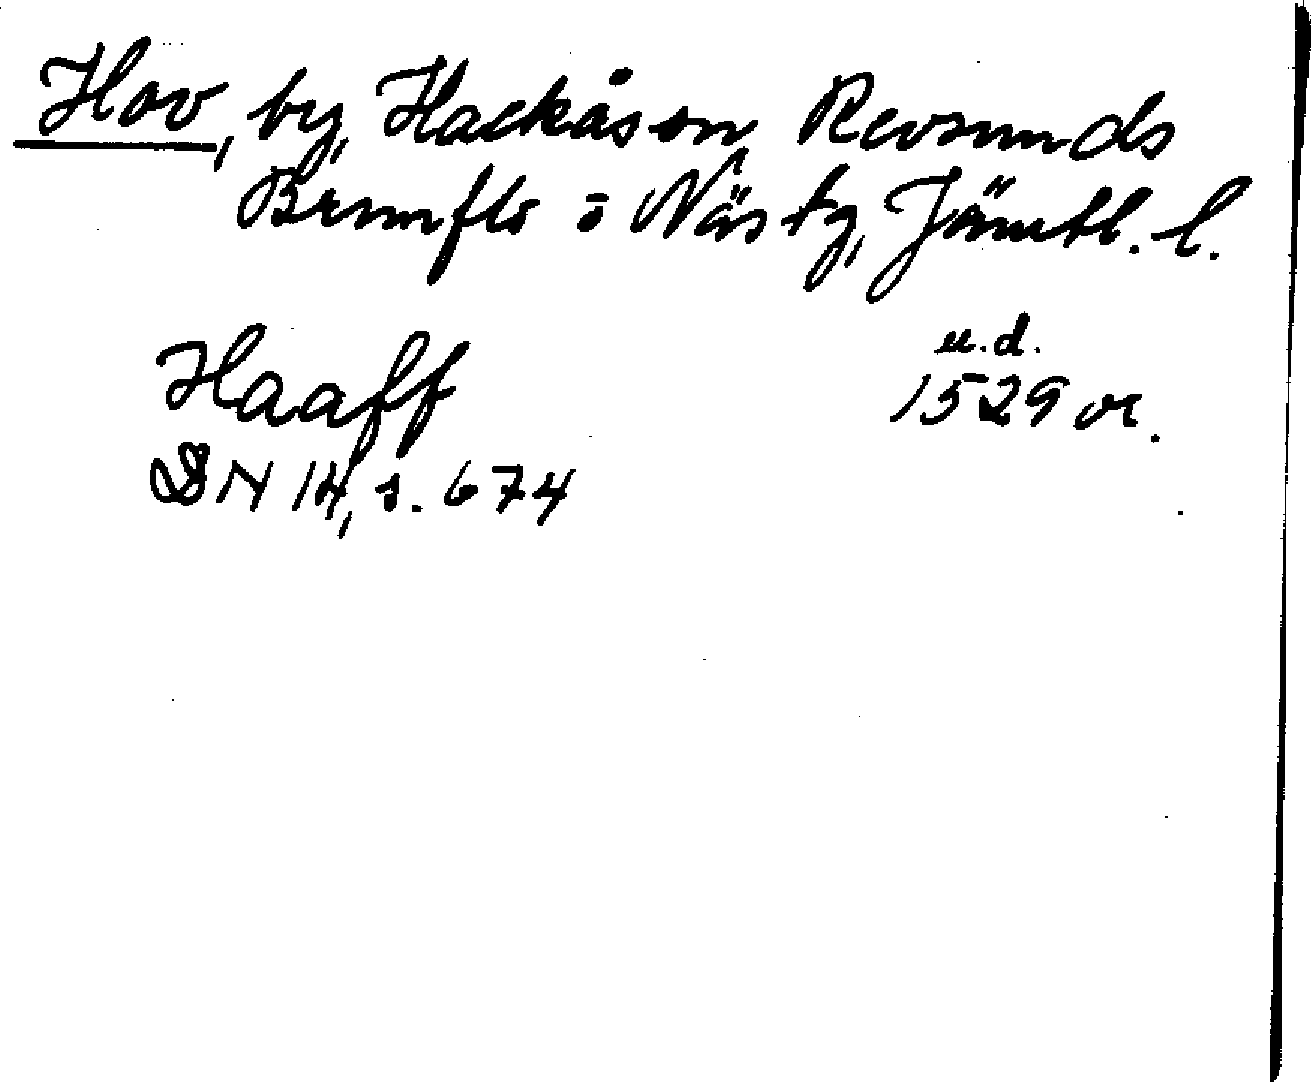 Hov, by, Hackås sn, Revsunds
Brunflo o Näs tg, Jämtl. l.
Haaff
u.d.
1529 or.
DN 14, s. 674